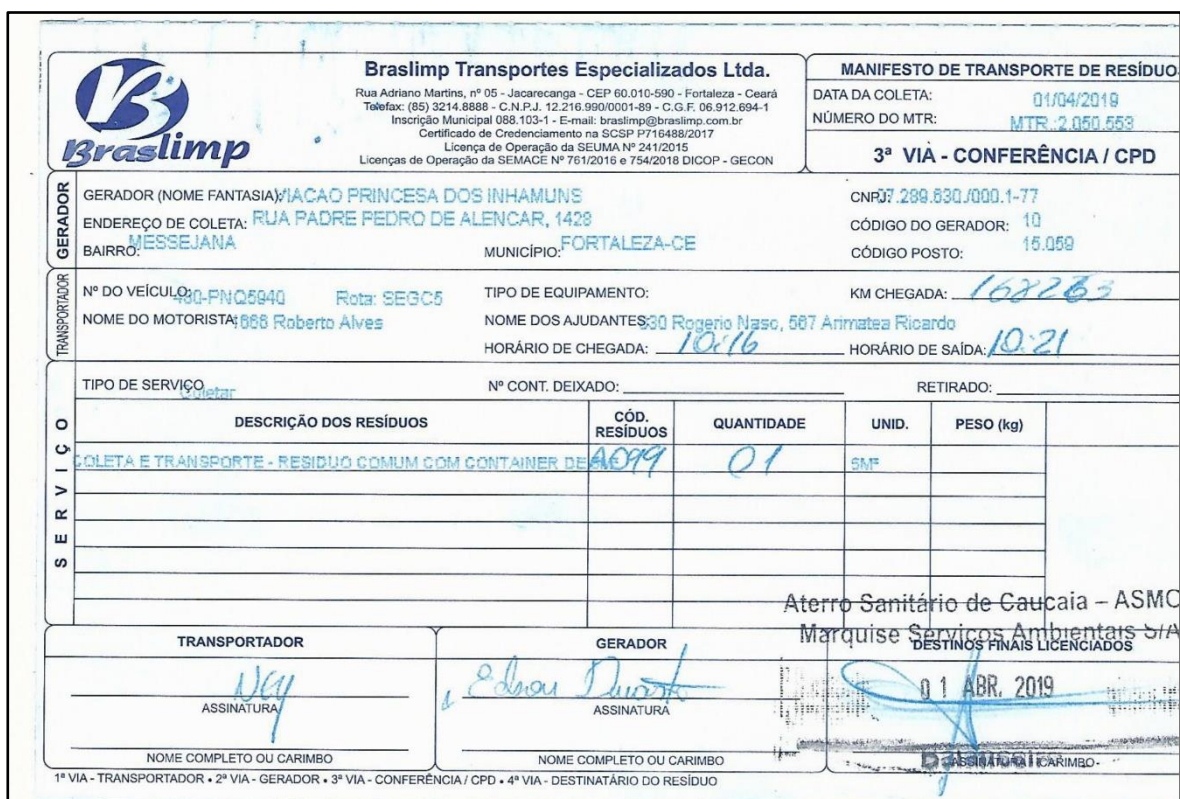 Braslimp
Braslimp Transportes Especializados Ltda.
Rua Adriano Martins, nº 05 - Jacarecanga - CEP 60.010-590 - Fortaleza - Ceará
Telefax: (85) 3214.8888 - C.N.P.J. 12.216.990/0001-89 - C.G.F. 06.912.694-1
Inscrição Municipal 088.103-1 - E-mail: braslimp@braslimp.com.br
Certificado de Credenciamento na SCSP P716488/2017
Licença de Operação da SEUMA Nº 241/2015
Licenças de Operação da SEMACE Nº 761/2016 e 754/2018 DICOP - GECON
MANIFESTO DE TRANSPORTE DE RESÍDUO
DATA DA COLETA: 01/04/2019
NÚMERO DO MTR: MTR.:2.050.553
3ª VIA - CONFERÊNCIA / CPD
GERADOR
GERADOR (NOME FANTASIA): VIACAO PRINCESA DOS INHAMUNS CNPJ: 07.289.630./000.1-77
ENDEREÇO DE COLETA: RUA PADRE PEDRO DE ALENCAR, 1428 CÓDIGO DO GERADOR: 10
BAIRRO: MESSEJANA MUNICÍPIO: FORTALEZA-CE CÓDIGO POSTO: 15.059
TRANSPORTADOR
Nº DO VEÍCULO: PNQ5940 Rota: SEGC5 TIPO DE EQUIPAMENTO: KM CHEGADA: 168263
NOME DO MOTORISTA: 1666 Roberto Alves NOME DOS AJUDANTES: 530 Rogerio Nasc, 567 Arimatea Ricardo
HORÁRIO DE CHEGADA: 10:16 HORÁRIO DE SAÍDA: 10:21
SERVIÇO
TIPO DE SERVIÇO Coletar Nº CONT. DEIXADO: RETIRADO:
DESCRIÇÃO DOS RESÍDUOS CÓD. RESÍDUOS QUANTIDADE UNID. PESO (kg)
COLETA E TRANSPORTE - RESIDUO COMUM COM CONTAINER DE A099 01
Aterro Sanitário de Caucaia – ASMO
Marquise Serviços Ambientais S/A
TRANSPORTADOR GERADOR DESTINOS FINAIS LICENCIADOS
Ney Edson Duarte 01 ABR. 2019
ASSINATURA ASSINATURA
Balanceiro
NOME COMPLETO OU CARIMBO NOME COMPLETO OU CARIMBO ASSINATURA / CARIMBO
1ª VIA - TRANSPORTADOR • 2ª VIA - GERADOR • 3ª VIA - CONFERÊNCIA / CPD • 4ª VIA - DESTINATÁRIO DO RESÍDUO